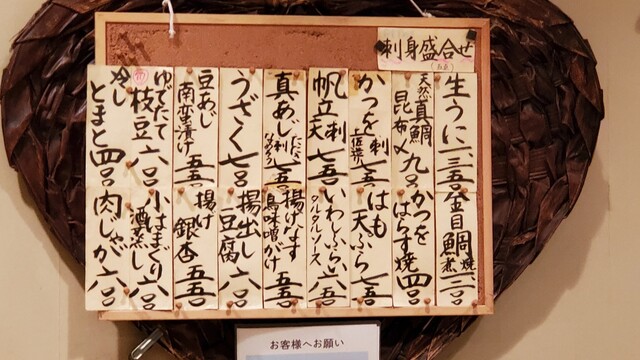 刺身盛合せ
生うに 一、三五〇
天然真鯛昆布〆 九〇〇
かつを刺 土佐造 七五〇
帆立刺 天 七五〇
真あじ刺 たたき なめろう 七五〇
うざく 七五〇
豆あじ南蛮漬け 五五〇
ゆでたて枝豆 六〇〇
冷しとまと 四五〇
金目鯛 焼 煮
かつをはらす焼 四五〇
はも天ぷら 七五〇
いわしふらい タルタルソース 六五〇
揚げなす鳥味噌かけ 五五〇
揚出し豆腐 六〇〇
揚げ銀杏 五五〇
小はまぐり酒蒸し 六〇〇
肉じゃが 六〇〇
お客様へお願い